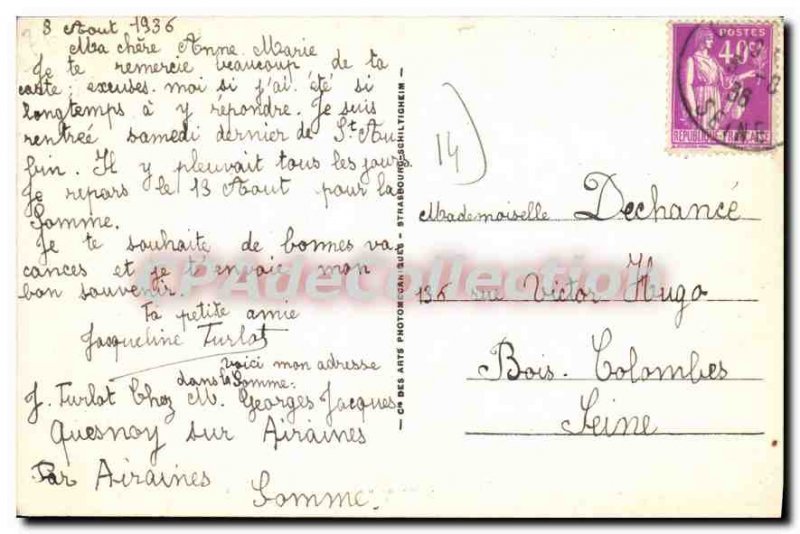 8 Aout 1936
Ma chère Anne Marie
Je te remercie beaucoup de ta
carte; excuses moi si j'ai été si
longtemps à y répondre. Je suis
rentrée samedi dernier de St Au
bin. Il y pleuvait tous les jours.
Je repars le 13 Aout pour la
Somme.
Je te souhaite de bonnes va
cances et je t'envoie mon
bon souvenir.
Ta petite amie
Jacqueline Turlot
voici mon adresse
dans la Somme:
J. Turlot Chez M. Georges Jacques
Quesnoy sur Airaines
Par Airaines
Somme.
Cie DES ARTS PHOTOMECANIQUES - STRASBOURG-SCHILTIGHEIM
14
POSTES
40c
REPUBLIQUE FRANCAISE
36
SEINE
Mademoiselle Dechancé
136 rue Victor Hugo
Bois. Colombes
Seine
CPAdeCollection